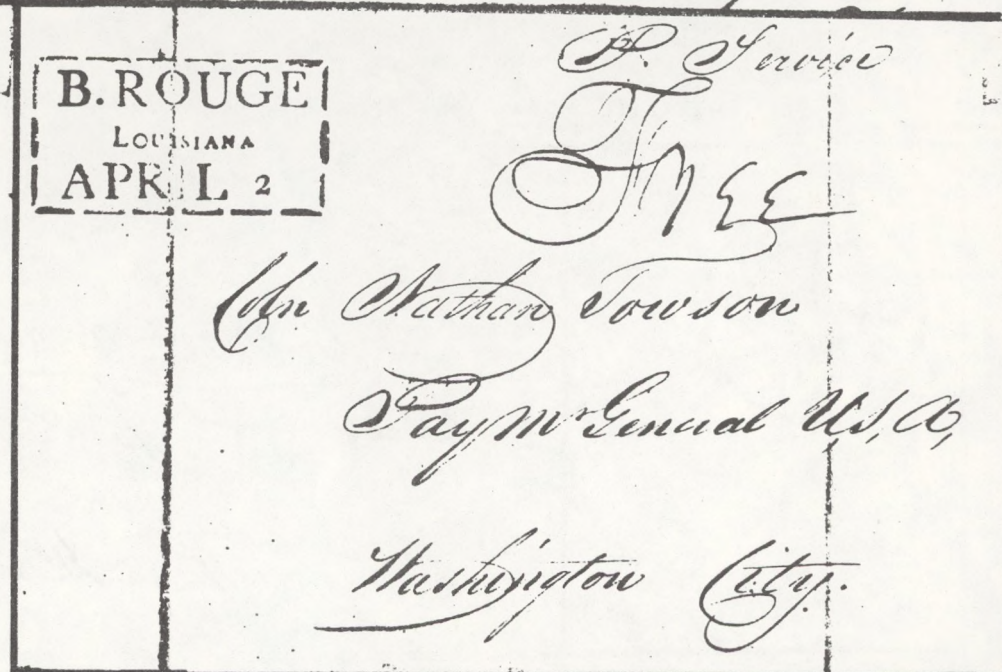 B. ROUGE
LOUISIANA
APRIL 2
P. Service
Free
Coln Nathan Towson
Pay Mr General U.S.A,
Washington City.